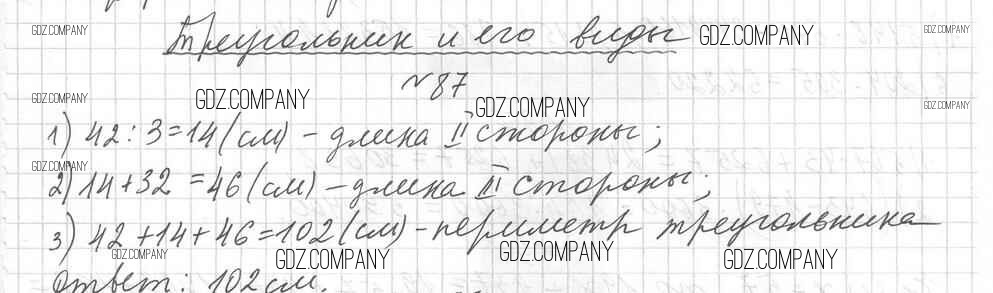 Треугольник и его виды
№87
1) 42:3=14(см) - длина II стороны;
2) 14+32=46(см) - длина III стороны;
3) 42+14+46=102(см) - периметр треугольника
Ответ: 102 см.
GDZ.COMPANY
GDZ.COMPANY
GDZ.COMPANY
GDZ.COMPANY
GDZ.COMPANY
GDZ.COMPANY
GDZ.COMPANY
GDZ.COMPANY
GDZ.COMPANY
GDZ.COMPANY
GDZ.COMPANY
GDZ.COMPANY